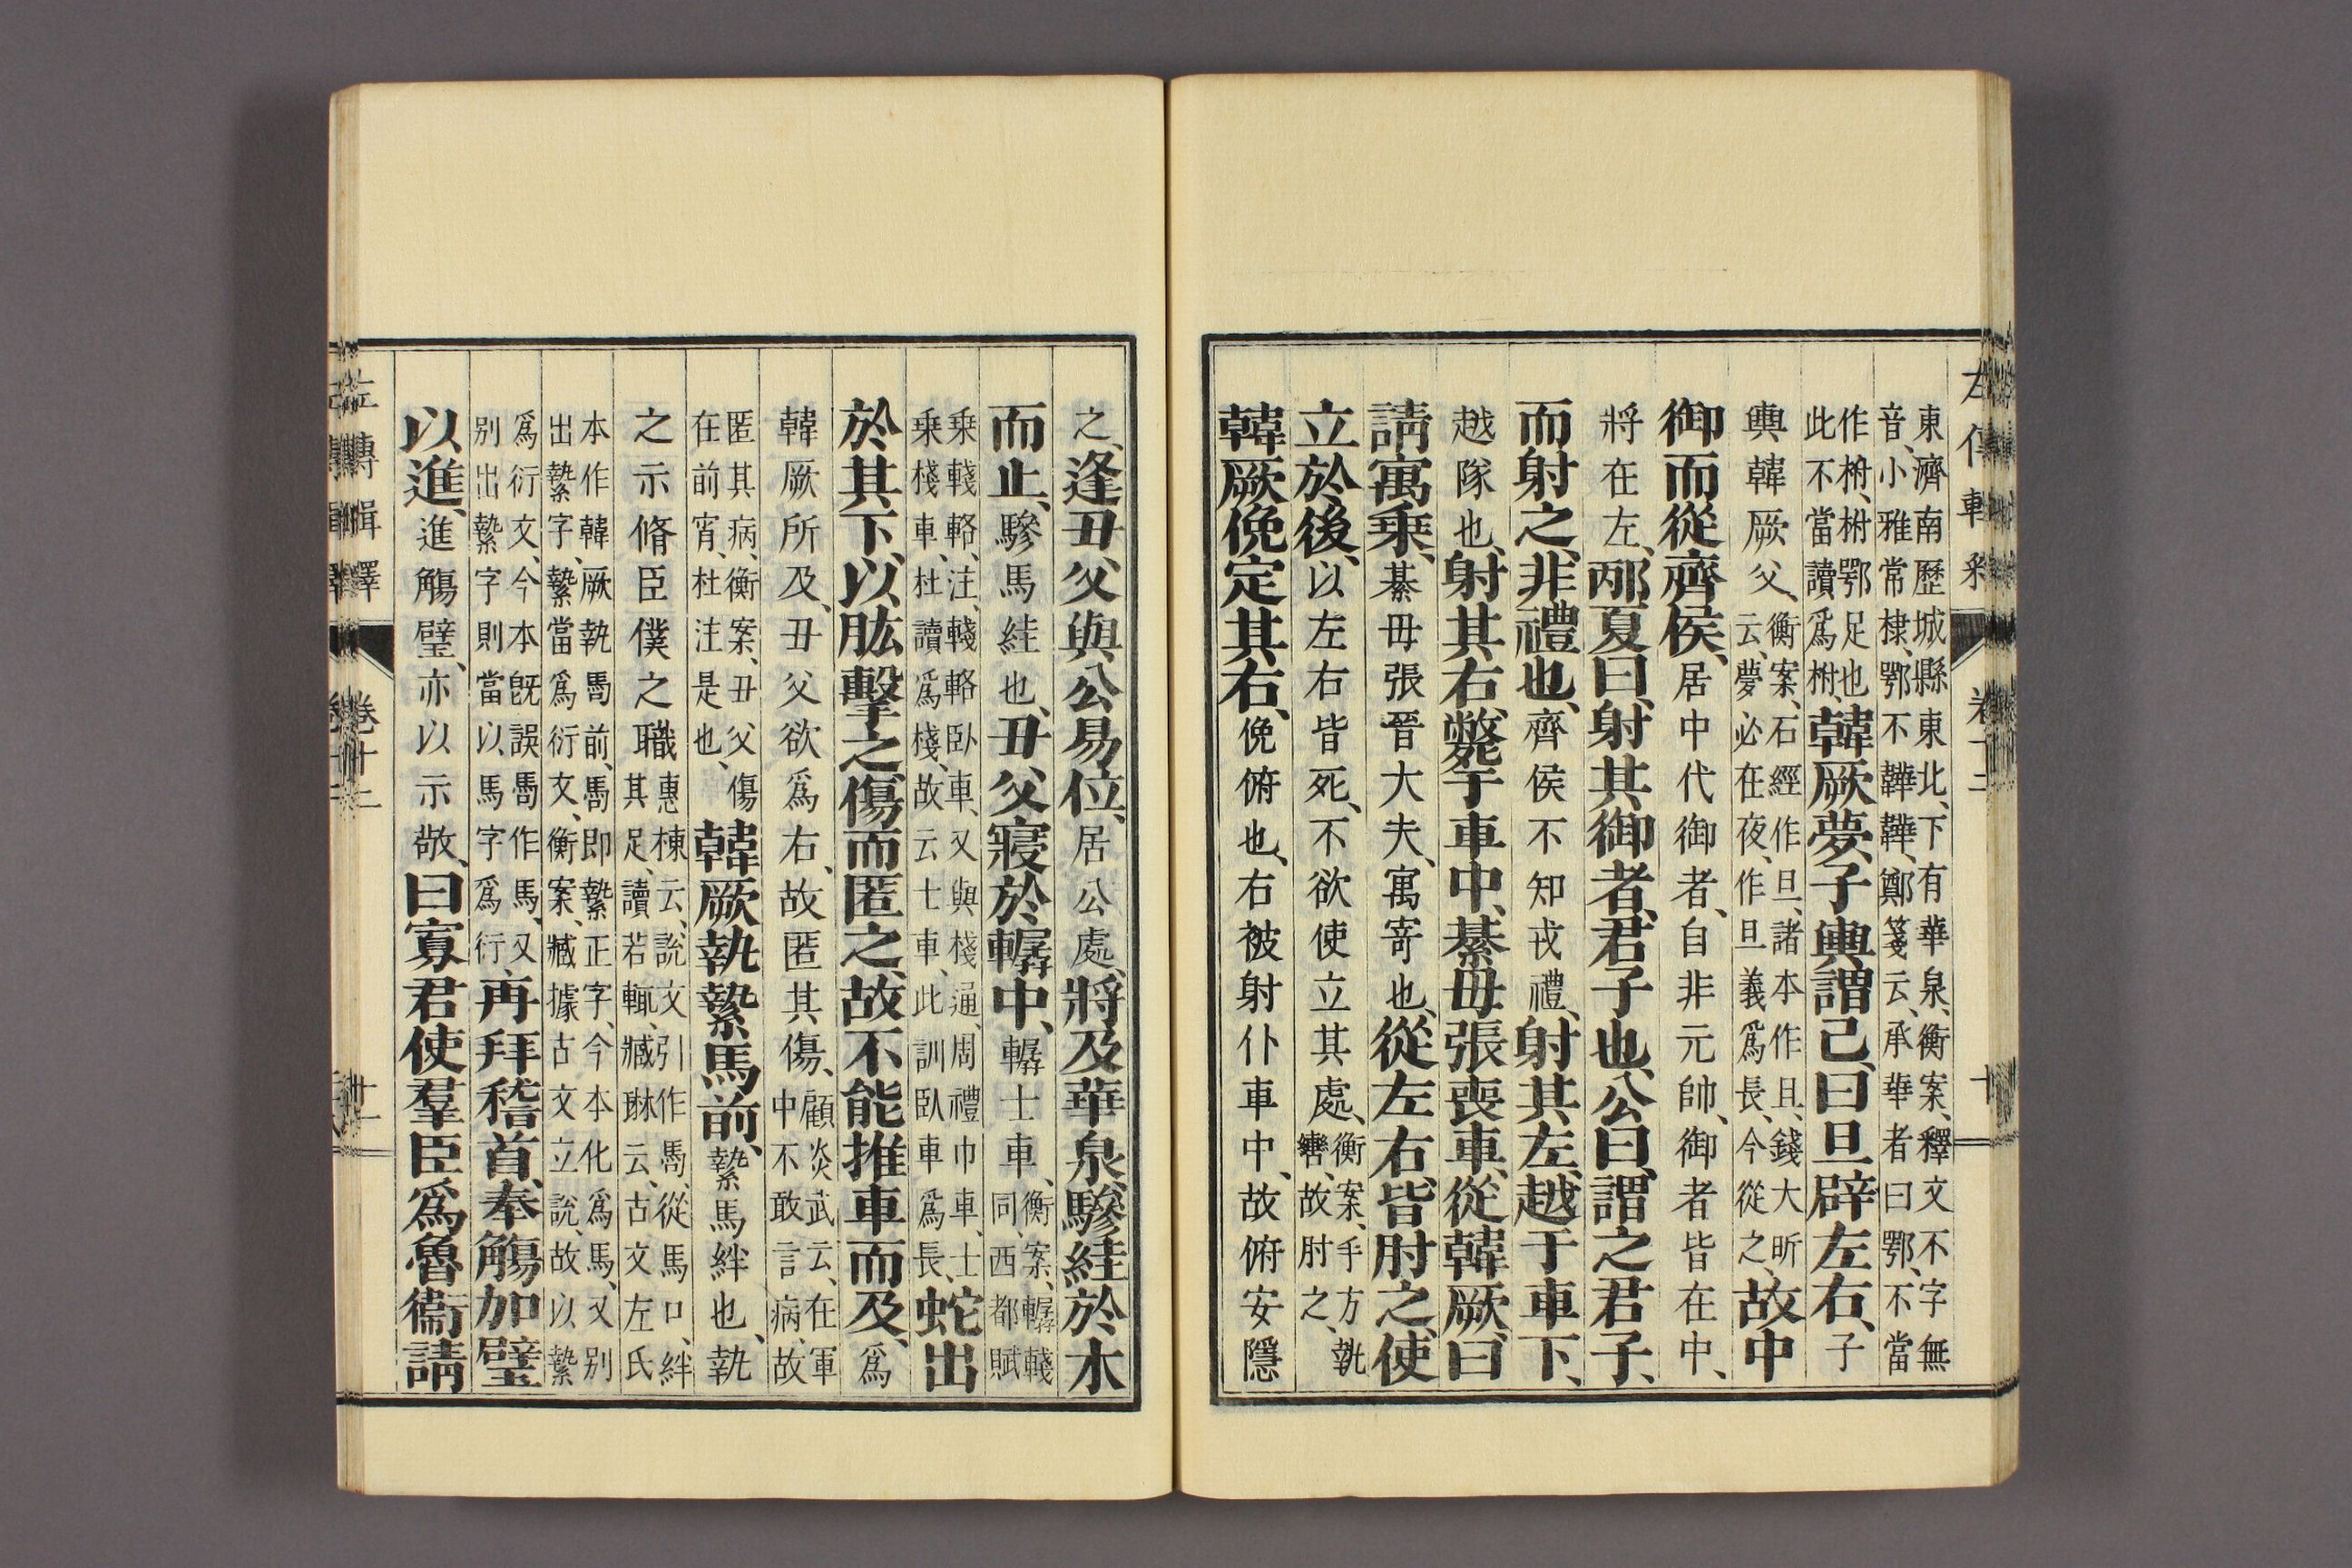 東濟南歷城縣東北、下有華泉、衡案、釋文不字無
音、小雅常棣、鄂不韡韡、鄭箋云、承華者曰鄂、不當
作柎、柎鄂足也
此不當讀爲柎、韓厥夢子輿謂己、曰旦辟左右、子
輿韓厥父、衡案、石經作旦、諸本作且、錢大昕
云、夢必在夜、作旦義爲長、今從之、故中
御而從齊侯、居中代御者、自非元帥、御者皆在中、
將在左、邴夏曰、射其御者、君子也、公曰、謂之君子、
而射之、非禮也、齊侯不知戎禮、射其左、越于車下、
越隊也、射其右、斃于車中、綦毋張喪車、從韓厥、曰
請寓乗、綦毋張晉大夫、寓寄也、從左右、皆肘之、使
立於後、以左右皆死、不欲使立其處、衡案、手方執
轡、故肘之、
韓厥俛定其右、俛俯也、右被射仆車中、故俯安隱
之、逢丑父與公易位、居公處、將及華泉、驂絓於木
而止、驂馬絓也、丑父寢於轏中、轏士車、衡案、轏輚
同、西都賦
乗輚輅、注、輚輅臥車、又與棧通、周禮巾車、士
乗棧車、杜讀爲棧、故云士車、此訓臥車爲長、蛇出
於其下、以肱擊之、傷而匿之、故不能推車而及、爲
韓厥所及、丑父欲爲右、故匿其傷、顧炎武云、在軍
中不敢言病、故
匿其病、衡案、丑父傷
在前宵、杜注是也、韓厥執縶馬前、縶馬絆也、執
之示脩臣僕之職、惠棟云、說文引作馽、從馬口、絆
其足、讀若輒、臧琳云、古文左氏
本作韓厥執馽前、馽即縶正字、今本化爲馬、又别
出縶字、縶當爲衍文、衡案、臧據古文立說、故以縶
爲衍文、今本旣誤馽作馬、又
别出縶字則當以馬字爲衍、再拜稽首、奉觴加璧
以進、進觴璧、亦以示敬、曰寡君使羣臣爲魯衞請
左傳輯釋
卷十二